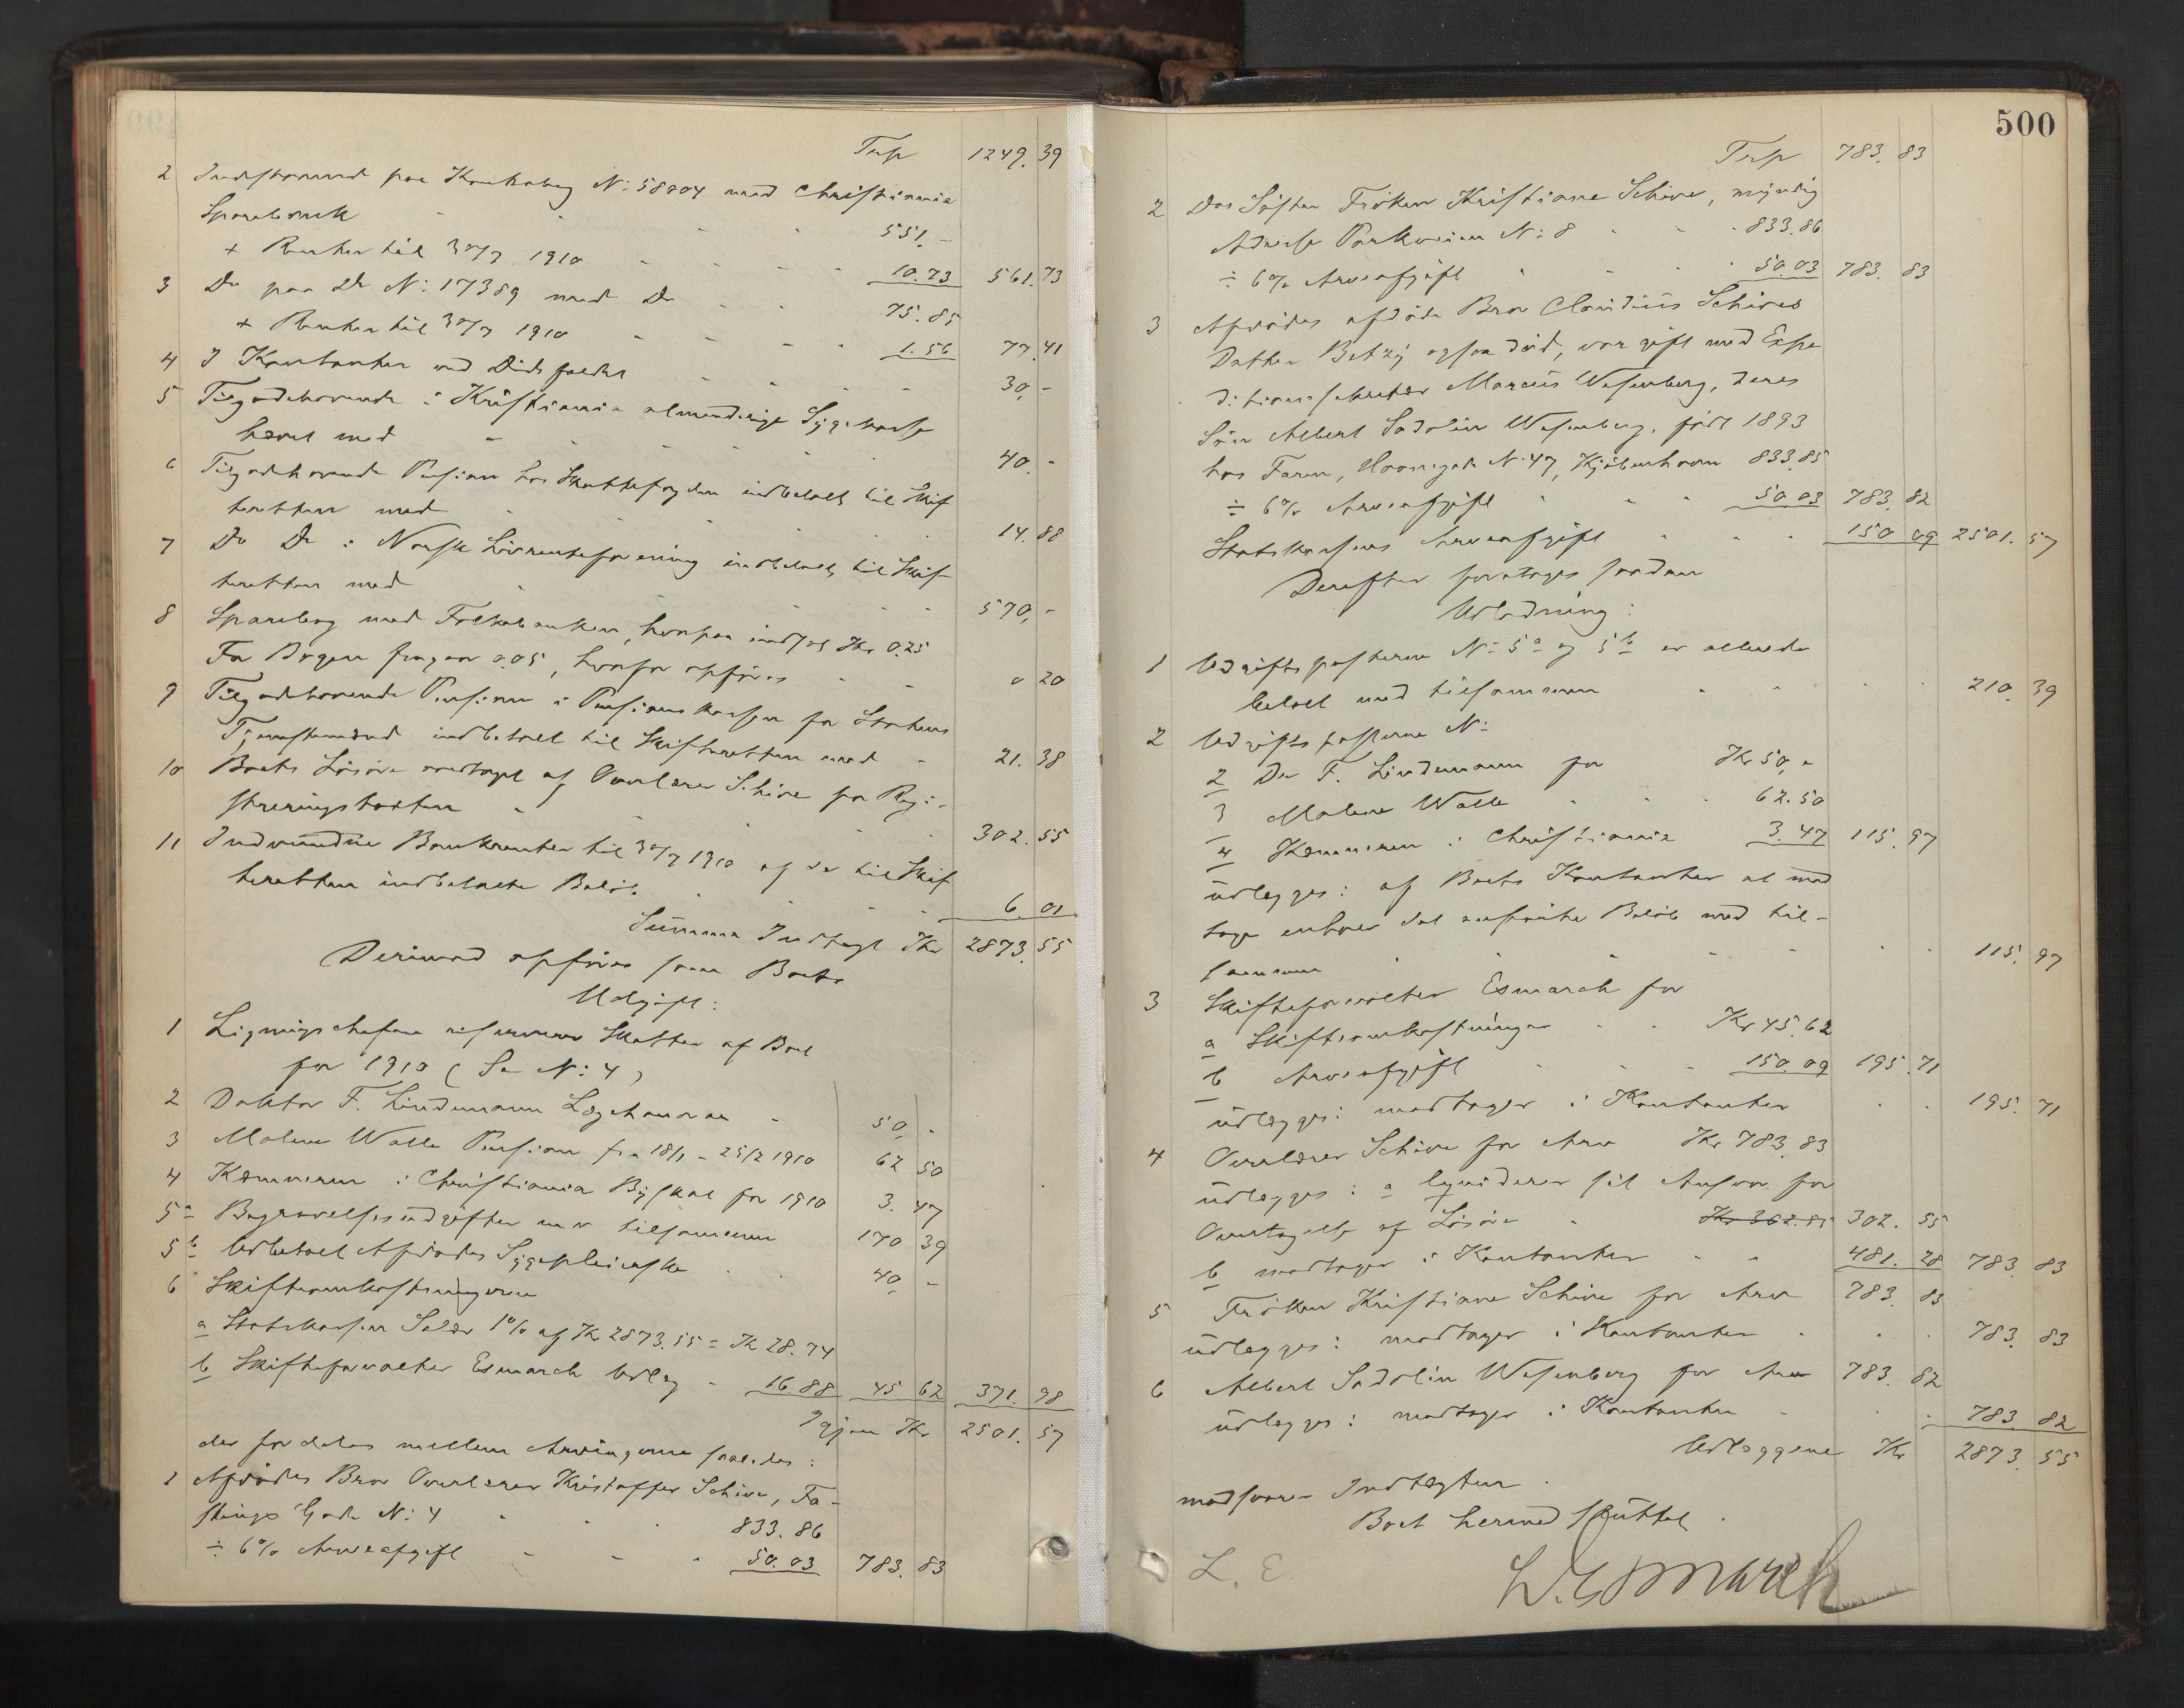 Trsp 1249. 39
2 Indestaaende paa Kontrabog No: 58804 med Christiania
Sparebank 551.-
+ Renter til 30/7 1910 10.73 561.73
3 Do paa Do No: 17389 med Do 75.85
+ Renter til 30/7 1910 1.56 77.41
4 I Kontanter ved Dødsfaldet 30,-
5 Tilgodehavende i Kristiania almindelige Sygekasse
hævet med 40.-
6 Tilgodehavende Pension hos Skattefogden indbetalt til Skif
teretten med 14.88
7 Do Do i Norsk Livrenteforening indbetalt til Skif-
teretten med 570,-
8 Sparebog med Folkebanken, hvorpaa indstod Kr 0.25
For Bogen fragaar 0.05, hvorfor opføres 0 20
9 Tilgodehavende Pension i Pensionskassen for Statens
Tjenestemænd indbetalt til Skifteretten med 21.38
10 Boets Løsøre modtaget af Overlærer Schive for Regi-
streringstaxten 302.55
11 Indvundne Bankrenter til 30/7 1910 af de til Skif
teretten indbetalte Beløb 6.01
Summa Indtægt Kr 2873.55
Derimod opføres som Boets
Udgift:
1 Ligningschefen reserverer Skatter af Boet
for 1910 (Se No: 4)
2 Doktor F. Lindemann Lægehonorar 50,-
3 Malene Walle Pension fra 18/1 - 25/2 1910 62 50
4 Kæmneren i Christiania Byskat for 1910 3.47
5a Begravelsesudgifter m.v. tilsammen 170 39
5b Udbetalt Afdødes Sygepleierske 40 -
6 Skifteomkostningerne
a Statskassen Salær 1% af Kr 2873.55 = Kr 28.74
b Skifteforvalter Esmarch Udlæg 16.88 45 62 371.98
Igjen Kr 2501.57
der fordeles mellem Arvingerne saaledes:
1 Afdødes Bror Overlærer Kristoffer Schive, Fa-
stings Gade No: 4 833.86
÷ 6% Arveafgift 50.03 783.83
500
Trsp 783.83
2 Dos Søster Frøken Kristiane Schive, myndig
Adresse Parkveien No: 8 833.86
÷ 6% Arveafgift 50.03 783.83
3 Afdødes afdøde Bror Claudius Schives
Datter Betzy ogsaa død, var gift med Expe
ditionssekretær Marcus Wesenberg, deres
Søn Albert Sadolin Wesenberg, født 1893
hos Faren, No: 47, Kjøbenhavn 833.85
÷ 6% Arveafgift 50.03 783.82
Statskassens Arveafgift 150 09 2501.57
Derefter foretages saadan
Udlodning:
1 Udgiftsposterne No: 5a og 5b er allerede
betalt med tilsammen 210.39
2 Udgiftsposterne No:
2 Dr F. Lindemann for Kr 50,-
3 Malene Walle 62.50
4 Kæmneren i Christiania 3.47 115.97
udlægges: af Boets Kontanter at mod
tage enhver det anførte Beløb med til-
sammen 115.97
3 Skifteforvalter Esmarch for
a Skifteomkostninger Kr 45.62
b Arveafgift 150.09 195.71
udlægges: modtager i Kontanter 195.71
4 Overlærer Schive for Arv Kr 783.83
udlægges: a liqviderer sit Ansvar for
Overtagelse af Løsøre Kr 302.55 302.55
b modtager i Kontanter 481.28 783.83
5 Frøken Kristiane Schive for Arv 783.83
udlægges: modtager i Kontanter 783.83
6 Albert Sadolin Wesenberg for Arv 783.82
udlægges: modtager i Kontanter 783.82
Udlæggene Kr 2873.55
modsvarer Indtægten.
Boet hermed sluttet.
L. E
L. Esmarch